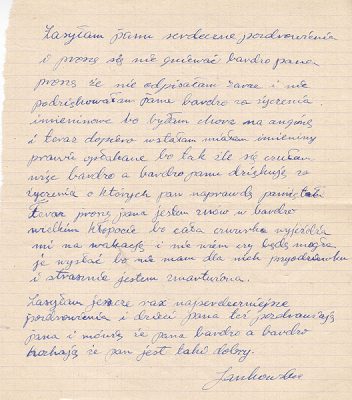 Zasyłam panu serdeczne pozdrowienia
i proszę się nie gniewać bardzo pana
proszę że nie odpisałam zaraz i nie
podziękowałam panu bardzo za życzenia
imieninowe bo byłam chora na anginę
i teraz dopiero wstałam miałam imieniny
prawie opłakane bo tak źle się czułam
więc bardzo a bardzo panu dziękuję za
życzenia o których pan naprawdę pamiętał
teraz proszę pana jestem znów w bardzo
wielkim kłopocie bo cała czwórka wyjeżdża
mi na wakacje i nie wiem czy będę mogła
je wysłać bo nie mam dla nich przyodziewku
i strasznie jestem zmartwiona.
Zasyłam jeszcze raz najserdeczniejsze
pozdrowienia i dzieci pana też pozdrawiają
pana i mówią że pana bardzo a bardzo
kochają że pan jest taki dobry.